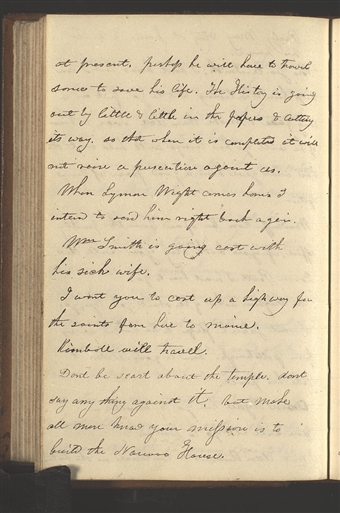 at present, perhaps he will have to travel
some to save his life. The History is going
out by little & little in the papers & cutting
its way. so that when it is completed it will
not raise a persecution against us.
When Lyman Wight comes home I
intend to send him right back again.
Wm Smith is going east with
his sick wife.
I want you to cast up a highway for
the saints from here to maine.
Kimball will travel.
Dont be scart about the temple. dont
say any thing against it. but make
all men know your mission is to
build the Nauvoo House.